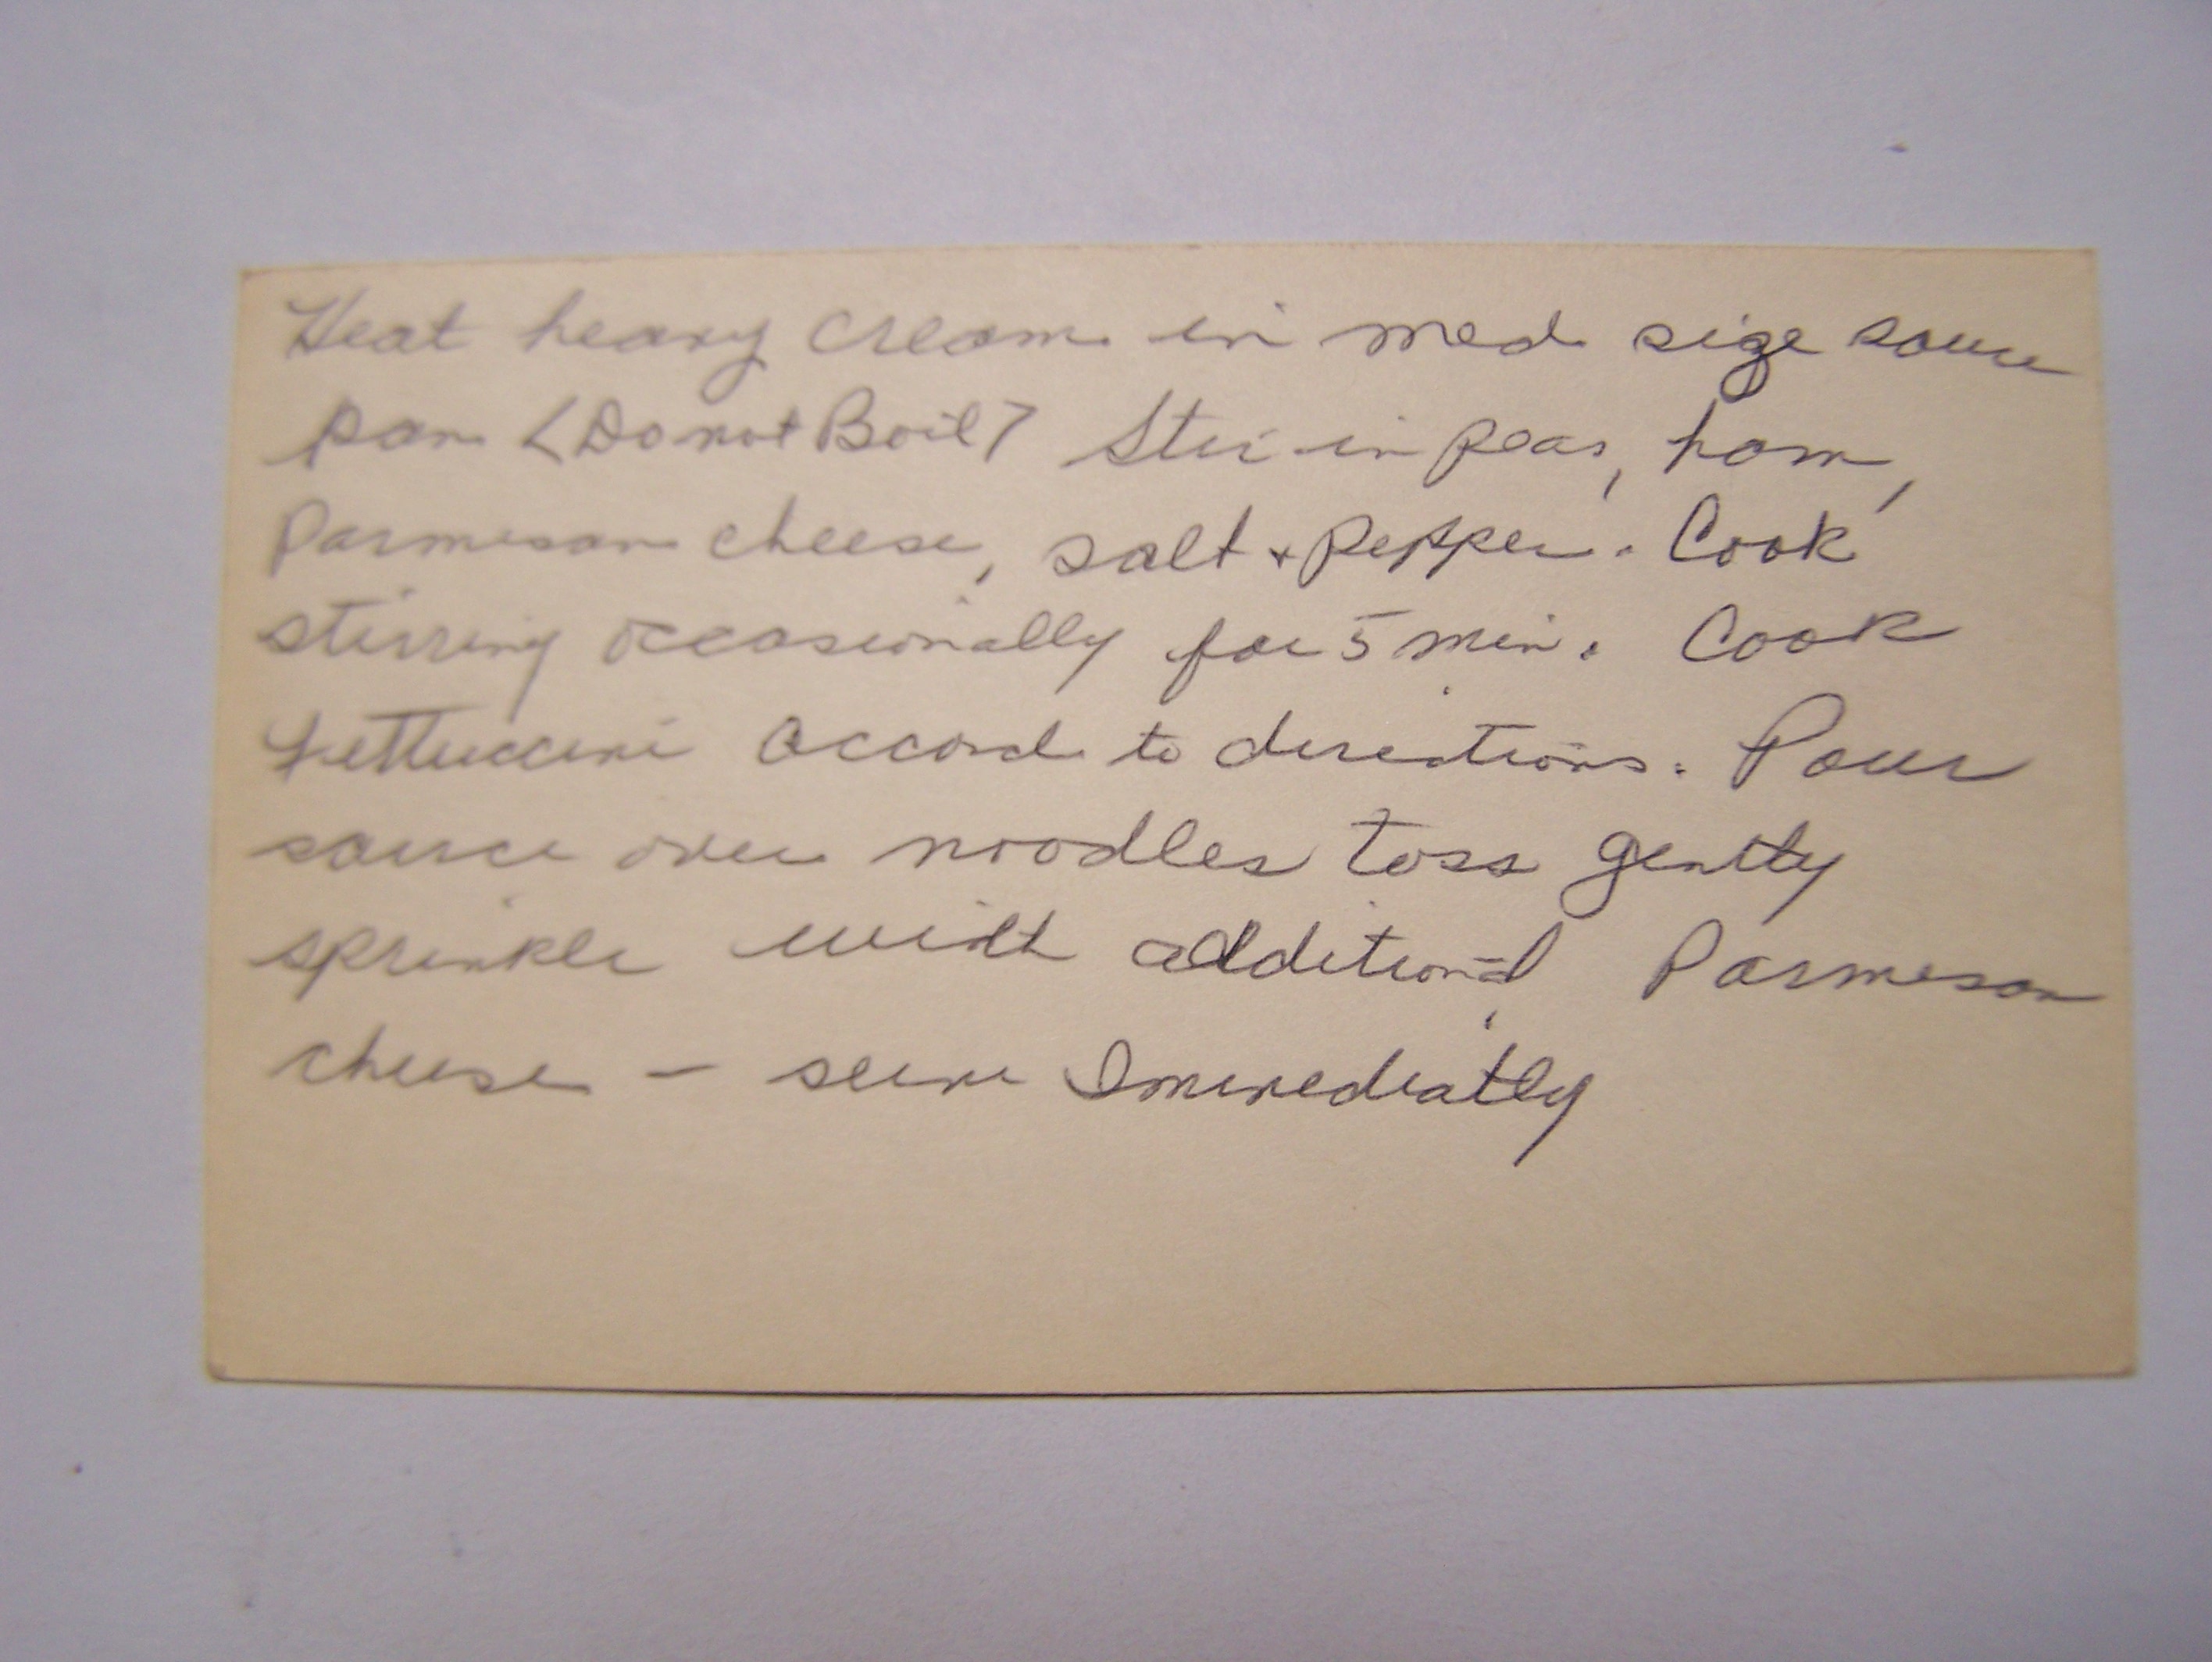 Heat heavy cream in med size sauce
pan <Do not Boil> Stir in peas, ham,
Parmesan cheese, salt + Pepper. Cook
stirring occasionally for 5 min. Cook
fettuccini accord to directions. Pour
sauce over noodles toss gently
sprinkle with additional Parmesan
cheese - serve Immediatly